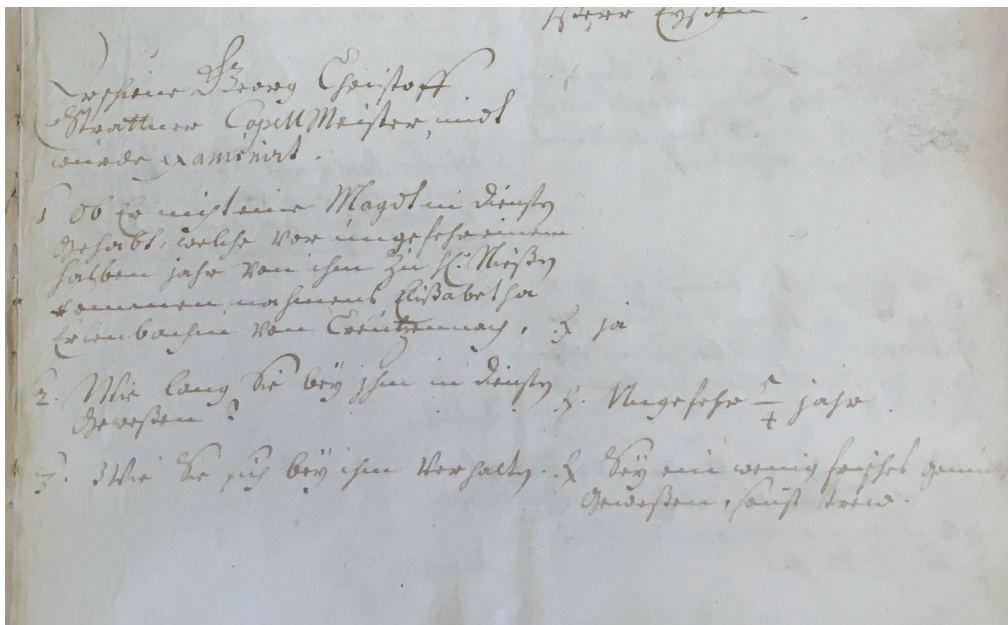 Erschiene H: Georg Christoff
Strattner Capell Meister, undt
wurde examinirt.
1 Ob Er nicht eine Magdt in diensten
gehabt, welche vor ungefehr einem
halben jahr von ihm zu H: Nießen
kommen nahmens Elisabetha
Erlenbachin von Creutzennach, R. ja
2. Wie lang Sie bey jhm in diensten
geweßen? R. Ungefehr 5/4 jahr.
3. Wie Sie sich bey ihm verhalten. R Sey ein wenig frisches
geweßen, sonst treu.